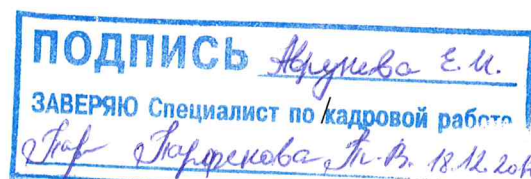 ПОДПИСЬ Аврунева Е.И.
ЗАВЕРЯЮ Специалист по кадровой работе
Парфенова Т.В. 18.12.201